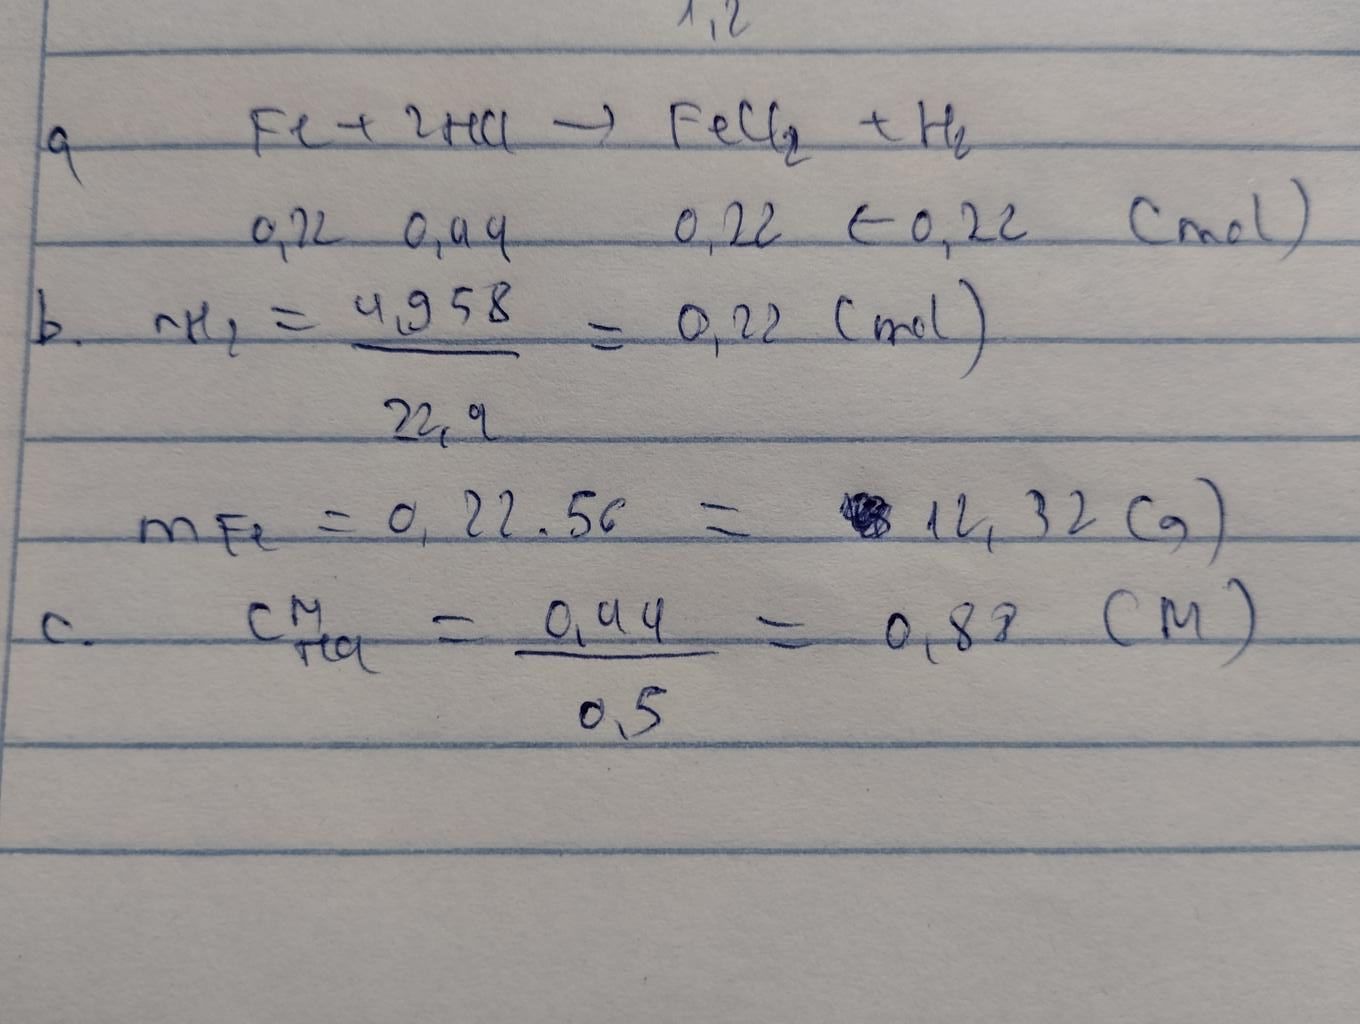 1,2
a Fe + 2HCl → FeCl2 + H2
0,22 0,44 0,22 ← 0,22 (mol)
b. nH2 = 4,958 / 22,4 = 0,22 (mol)
mFe = 0,22.56 = 12,32 (g)
c. CM HCl = 0,44 / 0,5 = 0,88 (M)